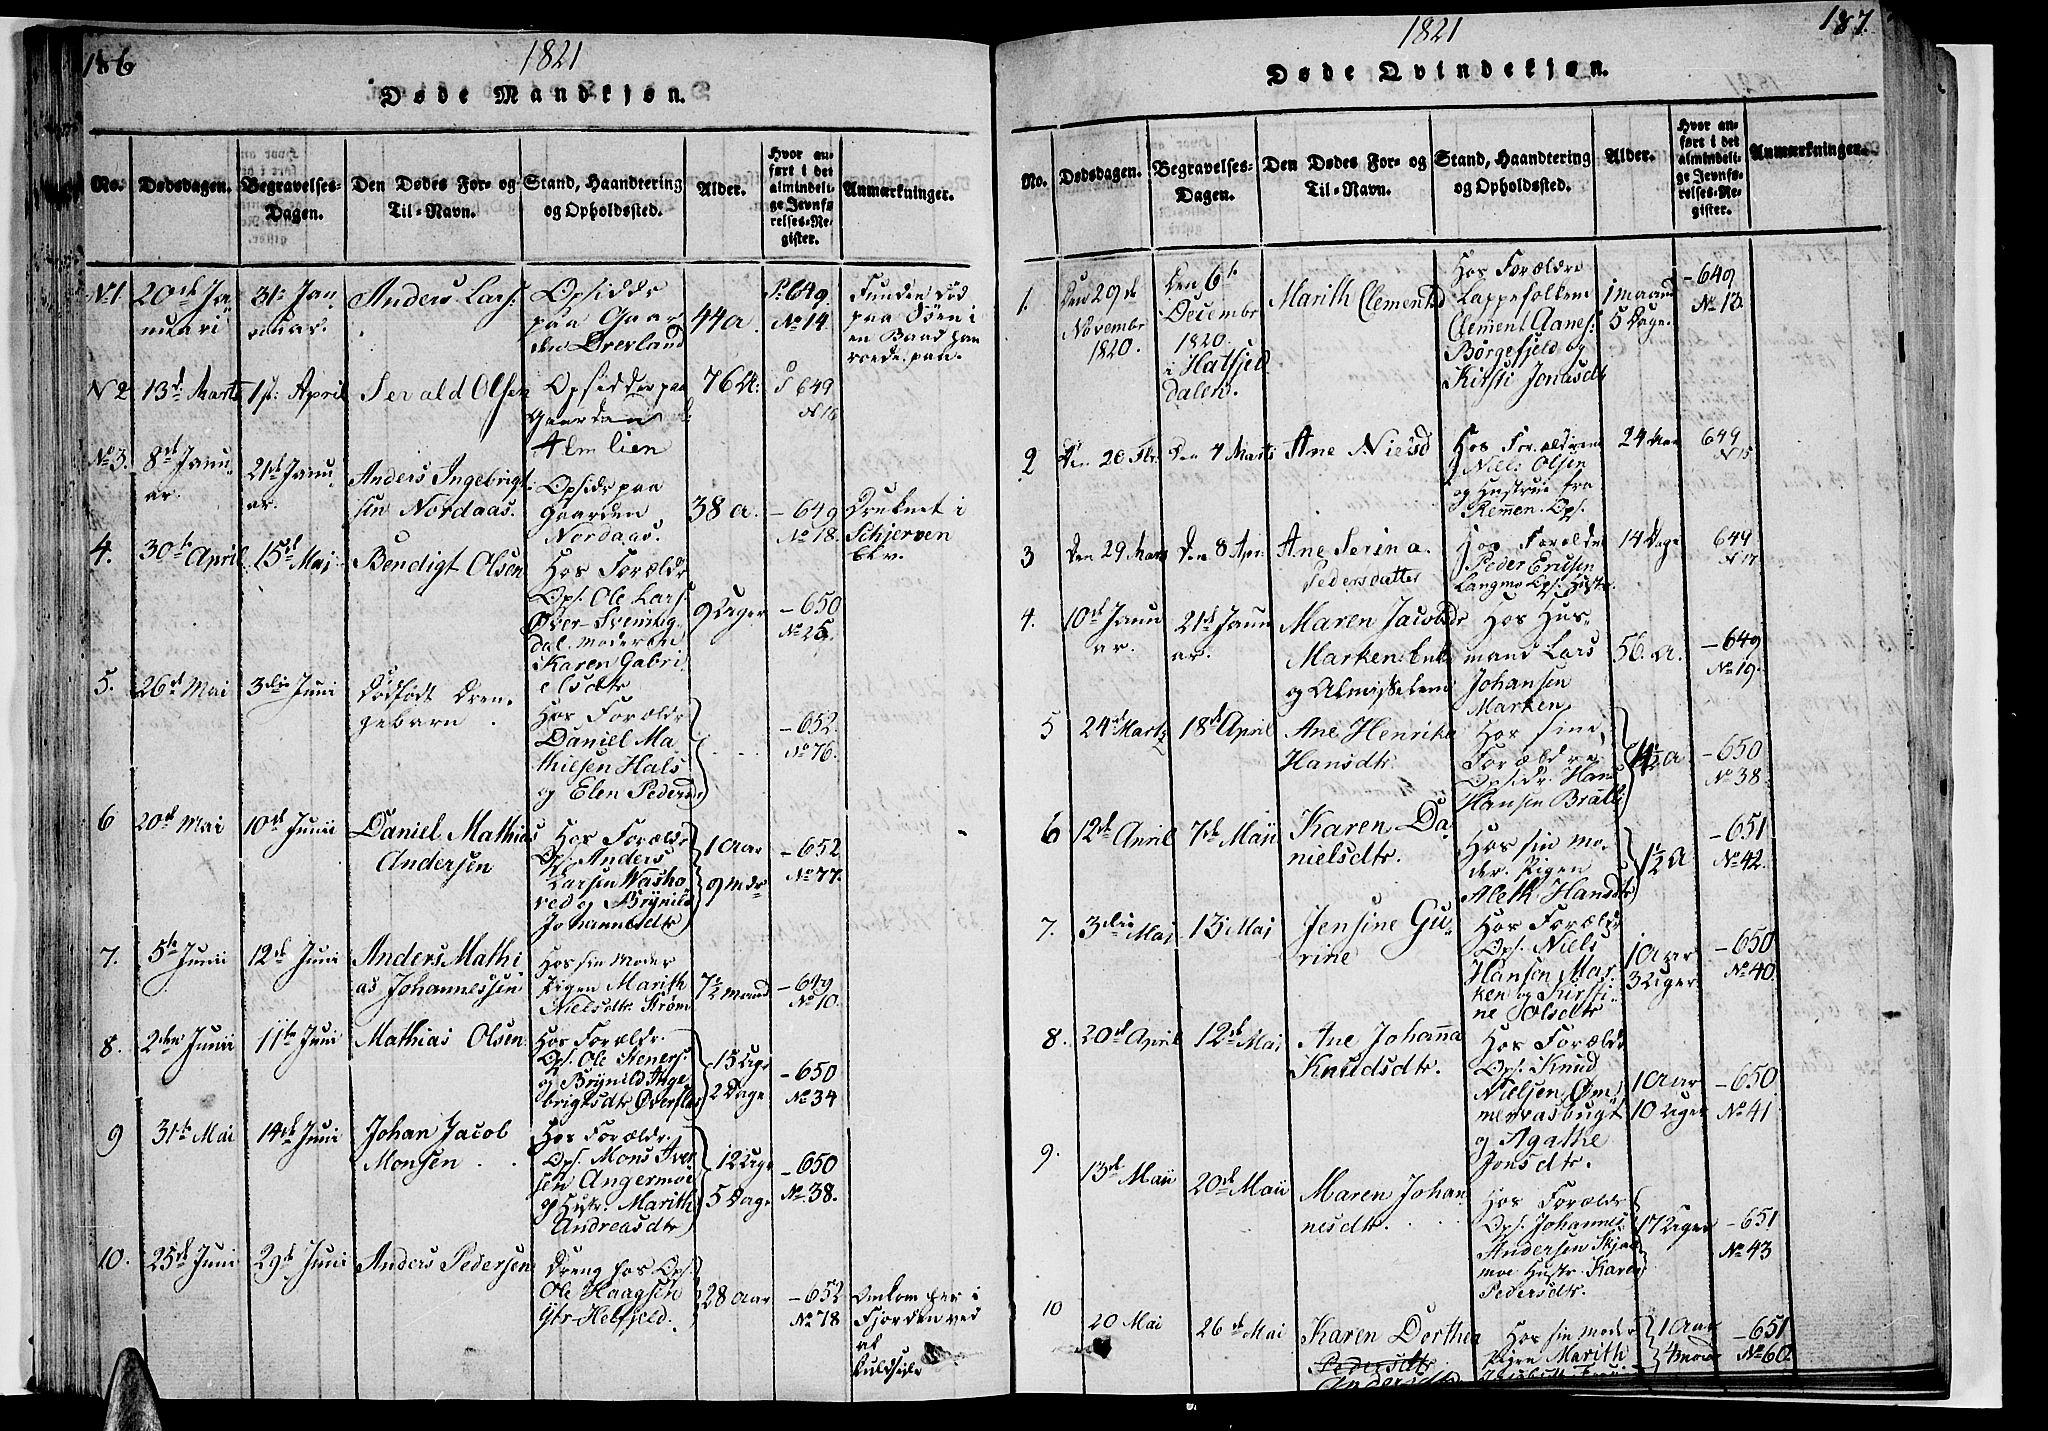 186
1821
Døde Mandkjøn.
No.
Dødsdagen.
Begravelses-
Dagen.
Den Dødes For- og
Til-Navn.
Stand, Haandtering
og Opholdssted.
Alder.
Hvor an-
ført i det
almindeli-
ge Jevnfø-
relses-Re-
gister.
Anmærkninger.
No 1.
20de Ja
nuari
31te Jan
nuar.
Anders Lars:
Opsidder
paa Gaar
den Øverland
44 a.
P. 649.
No 14.
Funden død
paa Søen i
en Baad han
roede paa.
N 2
13de Marts
1ste April
Servald Olsen
Opsidder paa
Gaarden
Almlien
76 A:
P 649
N 16
No 3.
8de Janu
ar.
21de Janu
ar.
Anders Ingebrigt
sen Nordaas.
Opsider paa
Gaarden
Nordaas.
38 a.
- 649
No 18.
Druknet i
Schjerven
Elv.
4.
30te April
15de Maj
Bendigt Olsen
Hos Forældr
Ops. Ole Lars
Øver-Svenning
dal. Moderen
Karen Gabri
elsdtr
9 Uger
- 650
No 25.
5.
26de Mai
3die Juni
Dødfødt Dren-
gebarn.
Hos Forældr
Daniel Ma
thiesen Hals
og Elen Pedersd
- 652
No 76.
6
20de Mai
10de Junii
Daniel Mathias
Andersen
Hos Forældr
Ops. Anders
Larsen
og Brÿnild
Johannesdtr
1 Aar
9 Mdr
- 652
No 77.
7.
5te Junii
12de Juni
Anders Mathi
as Johannessen
Hos sin Moder
Pigen Marith
Nielsdtr Strøm
7½ Maand
- 649
No 10.
8.
2den Junii
11te Juni
Mathias Olsen
Hos Forældr.
Ops. Ole
og Brÿnild Inge
brigtsdtr
13 Uger
2 Dage
- 650
No 34
9
31te Mai
14de Juni
Johan Jacob
Monsen
Hos Forældr.
Ops. Mons Iver
sen Angermoe
og Hustr. Marith
Andreasdtr
12 Uger
5 Dage
- 650
No 38.
10.
25de Juni
29de Juni
Anders Pedersen
Dreng hos Ops.
Ole Haagsen
Ytr-Helfjeld.
28 Aar
- 652
No 78
Omkom her i
Fjorden ved
at
Kuldseile
187.
1821
Døde Qvindekjøn.
No.
Dødsdagen.
Begravelses-
Dagen.
Den Dødes For- og
Til-Navn.
Stand, Haandtering
og Opholdssted.
Alder.
Hvor an-
ført i det
almindeli-
ge Jevnfø-
relses-Re-
gister.
Anmærkninger.
1.
Den 29de
Novembr
1820.
Den 6te
Decembr
1820.
i Hatfjed
dalen.
Marith Clementsd
Hos Forældre
Lappefolkene
Clement Aanes:
Børgefjeld og
Kirsti Jonasdtr
1 maaned
5 Dage.
- 649
No 13.
2
Den 4 Marts
Ane Nielsd
Hos Forældrene
Niels Olsen
og Hustrue fra
Remen. Ops.
649
N 15
3
Den 29 Mars
Den 8 Apr:
Ane Serina.
Pedersdatter
Hos Forældr
Peder Ericsen
Langmo Ops. Hustr.
14 Dage
649
N 17
4.
10de Janu
ar.
21de Janu
ar.
Maren Jacobsdr
Marken Enk
og Almisselem
Hos Hus-
mand Lars
Johansen
Marken
56. a.
- 649
No 19.
5
24de Martz
18de April
Ane Henrika
Hansdtr.
Hos sine
Forældre
Opsidr. Hans
Hansen Bratli
- 650
No 38.
6
12de April
7de Maii
Karen Da
nielsdtr.
Hos sin Mo-
der. Pigen
Aleth Hansdtr
1½ A
- 651
No 42.
7.
3die Maj
13 Maj
Jensine Gu-
rine
Hos Forældr
Ops. Niels
Hansen Mar
ken og Kirsti-
ne Olsdtr
1 Aar
3 Uger
- 650
No 40
8.
20de April
12de Mai
Ane Johanna
Knudsdtr.
Hos Forældr
Ops. Knud
Nielsen Øm
mervasbugt
og Agathe
Jonsdtr.
1 Aar
10 Uger
- 650
No 41
9.
13de Maii
20de Maii
Maren Johan
nesdtr.
Hos Forældr
Ops. Johannes
Andersen Skjaa
moe Hustr Karen
Pedersdtr.
17 Uger
- 651
No 43
10
20 Mai
26de Mai
Karen Dorthea
Pedersdtr
Andersdtr
Hos sin Moder
Pigen Marith
1 Aar
4 Modr
- 651
No 60.